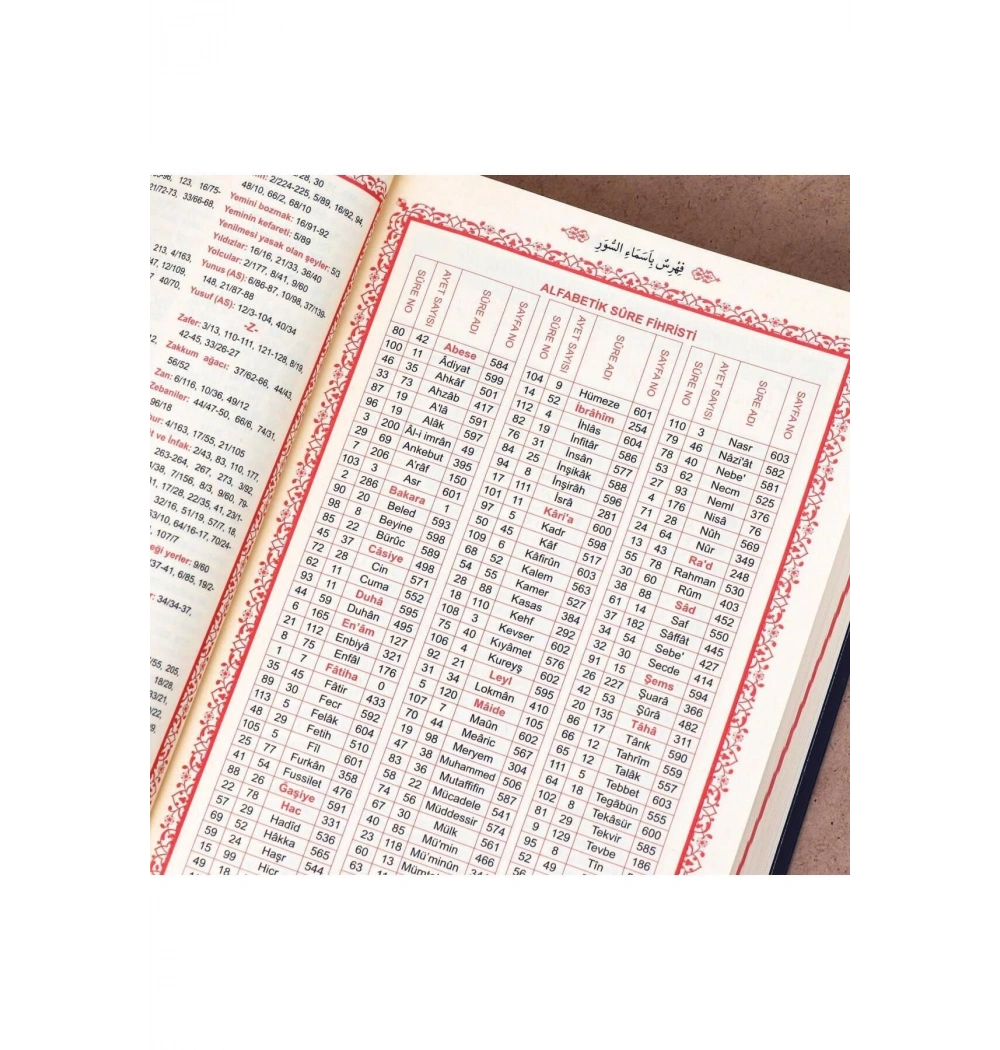 28, 30
2/224-225, 5/89, 16/92, 94,
48/10, 66/2, 68/10
Yemini bozmak: 16/91-92
Yeminin kefareti: 5/89
Yenilmesi yasak olan şeyler: 5/3
Yıldızlar: 16/16, 21/33, 36/40
Yolcular: 2/177, 8/41, 9/60
Yunus (AS): 6/86-87, 10/98, 37/139-
148, 21/87-88
Yusuf (AS): 12/3-104, 40/34
-Z-
Zafer: 3/13, 110-111, 121-128, 8/19,
42-45, 33/26-27
Zakkum ağacı: 37/62-66, 44/43,
56/52
Zan: 6/116, 10/36, 49/12
Zebaniler: 44/47-50, 66/6, 74/31,
96/18
4/163, 17/55, 21/105
ve İnfak: 2/43, 83, 110, 177,
263-264, 267, 273, 3/92,
7/156, 8/3, 9/60, 79-
17/28, 22/35, 41, 23/1-
32/16, 51/19, 57/7, 18,
63/10, 64/16-17, 70/24-
107/7
yerler: 9/60
37-41, 6/85, 19/2-
34/34-37,
فِهْرِسٌ بِأَسْمَاءِ السُّوَرِ
ALFABETİK SÛRE FİHRİSTİ
SÛRE NO AYET SAYISI SÛRE ADI SAYFA NO
80 42 Abese 584
100 11 Âdiyat 599
46 35 Ahkâf 501
33 73 Ahzâb 417
87 19 A'lâ 591
96 19 Alâk 597
3 200 Âl-i imrân 49
29 69 Ankebut 395
7 206 A'râf 150
103 3 Asr 601
2 286 Bakara 1
90 20 Beled 593
98 8 Beyine 598
85 22 Bürûc 589
45 37 Câsiye 498
72 28 Cin 571
62 11 Cuma 552
93 11 Duhâ 595
44 59 Duhân 495
6 165 En'âm 127
21 112 Enbiyâ 321
8 75 Enfâl 176
1 7 Fâtiha 0
35 45 Fâtir 433
89 30 Fecr 592
113 5 Felâk 604
48 29 Fetih 510
105 5 Fîl 601
25 77 Furkân 358
41 54 Fussilet 476
88 26 Gaşiye 591
22 78 Hac 331
57 29 Hadîd 536
69 52 Hâkka 565
59 24 Haşr 544
15 99 Hicr
49 18
SÛRE NO AYET SAYISI SÛRE ADI SAYFA NO
104 9 Hümeze 601
14 52 İbrâhîm 254
112 4 İhlâs 604
82 19 İnfitâr 586
76 31 İnsân 577
84 25 İnşikâk 588
94 8 İnşirâh 596
17 111 İsrâ 281
101 11 Kâri'a 600
97 5 Kadr 598
50 45 Kâf 517
109 6 Kâfirûn 603
68 52 Kalem 563
54 55 Kamer 527
28 88 Kasas 384
18 110 Kehf 292
108 3 Kevser 602
75 40 Kıyamet 576
106 4 Kureyş 602
92 21 Leyl 595
31 34 Lokmân 410
5 120 Mâide 105
107 7 Maûn 602
70 44 Meâric 567
19 98 Meryem 304
47 38 Muhammed 506
83 36 Mutaffifîn 587
58 22 Mücadele 541
74 56 Müddessir 574
67 30 Mülk 561
40 85 Mü'min 466
23 118 Mü'minûn
60 13
63 11
SÛRE NO AYET SAYISI SÛRE ADI SAYFA NO
110 3 Nasr 603
79 46 Nâzi'ât 582
78 40 Nebe' 581
53 62 Necm 525
27 93 Neml 376
4 176 Nisâ 76
71 28 Nûh 569
24 64 Nûr 349
13 43 Ra'd 248
55 78 Rahman 530
30 60 Rûm 403
38 88 Sâd 452
61 14 Saf 550
37 182 Sâffât 445
34 54 Sebe' 427
32 30 Secde 414
91 15 Şems 594
26 227 Şuarâ 366
42 53 Şûrâ 482
20 135 Tâhâ 311
86 17 Târık 590
66 12 Tahrîm 559
65 12 Talâk 557
111 5 Tebbet 603
64 18 Tegâbün 555
102 8 Tekâsür 600
81 29 Tekvir 585
9 129 Tevbe 186
95 8 Tîn
52 49